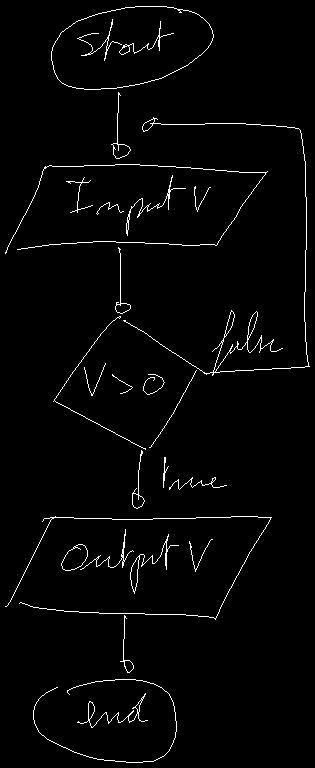 Start
Input V
false
V > 0
true
Output V
end